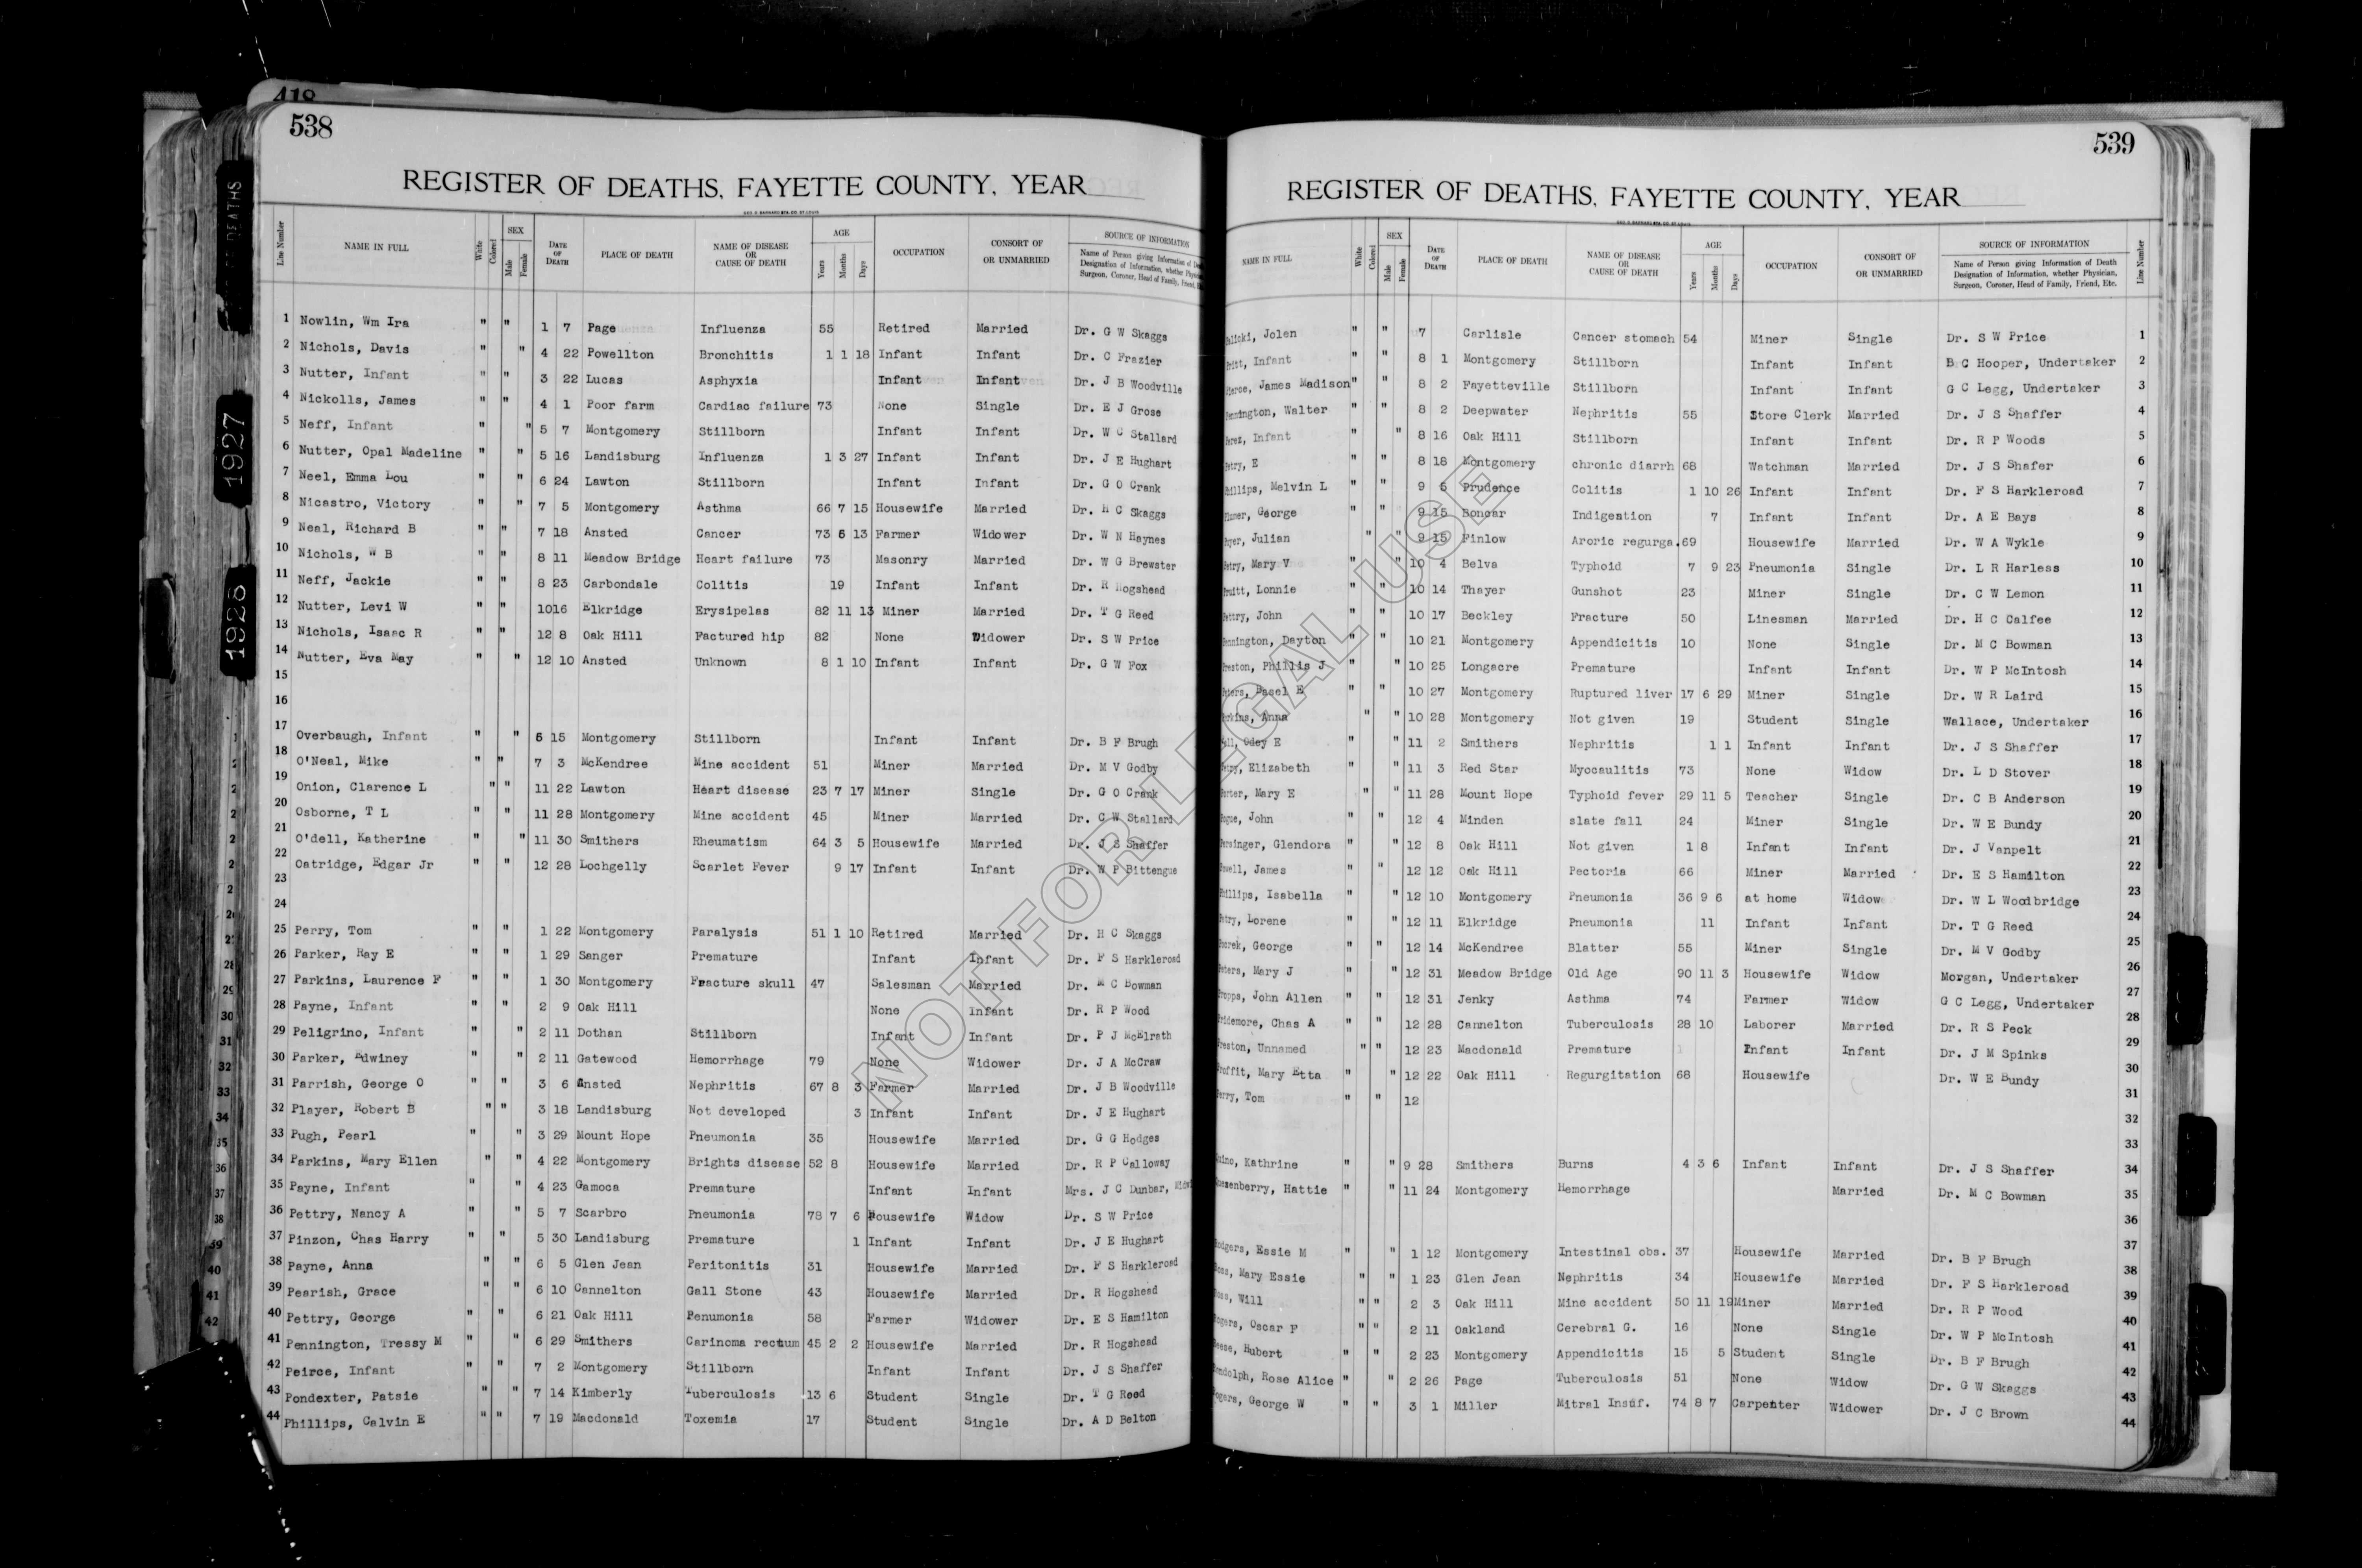 418
538
REGISTER OF DEATHS, FAYETTE COUNTY, YEAR
Line Number NAME IN FULL White Colored SEX Male Female DATE OF DEATH PLACE OF DEATH NAME OF DISEASE OR CAUSE OF DEATH AGE Years Months Days OCCUPATION CONSORT OF OR UNMARRIED SOURCE OF INFORMATION
Name of Person giving Information of
Designation of Information, whether
Surgeon, Coroner, Head of Family, Friend,
1 Nowlin, Wm Ira " " 1 7 Page Influenza 55 Retired Married Dr. G W Skaggs
2 Nichols, Davis " " 4 22 Powellton Bronchitis 1 1 18 Infant Infant Dr. C Frazier
3 Nutter, Infant " " 3 22 Lucas Asphyxia Infant Infant Dr. J B Woodville
4 Nickolls, James " " 4 1 Poor farm Cardiac failure 73 None Single Dr. E J Grose
5 Neff, Infant " " 5 7 Montgomery Stillborn Infant Infant Dr. W C Stallard
6 Nutter, Opal Madeline " " 5 16 Landisburg Influenza 1 3 27 Infant Infant Dr. J E Hughart
7 Neel, Emma Lou " " 6 24 Lawton Stillborn Infant Infant Dr. G O Crank
8 Nicastro, Victory " " 7 5 Montgomery Asthma 66 7 15 Housewife Married Dr. H C Skaggs
9 Neal, Richard B " " 7 18 Ansted Cancer 73 6 13 Farmer Widower Dr. W N Haynes
10 Nichols, W B " " 8 11 Meadow Bridge Heart failure 73 Masonry Married Dr. W G Brewster
11 Neff, Jackie " " 8 23 Carbondale Colitis 19 Infant Infant Dr. R Hogshead
12 Nutter, Levi W " " 10 16 Elkridge Erysipelas 82 11 13 Miner Married Dr. T G Reed
13 Nichols, Isaac R " " 12 8 Oak Hill Factured hip 82 None Widower Dr. S W Price
14 Nutter, Eva May " " 12 10 Ansted Unknown 8 1 10 Infant Infant Dr. G W Fox
15
16
17 Overbaugh, Infant " " 6 15 Montgomery Stillborn Infant Infant Dr. B F Brugh
18 O'Neal, Mike " " 7 3 McKendree Mine accident 51 Miner Married Dr. M V Godby
19 Onion, Clarence L " " 11 22 Lawton Heart disease 23 7 17 Miner Single Dr. G O Crank
20 Osborne, T L " " 11 28 Montgomery Mine accident 45 Miner Married Dr. C W Stallard
21 O'dell, Katherine " " 11 30 Smithers Rheumatism 64 3 5 Housewife Married Dr. J S Shaffer
22 Oatridge, Edgar Jr " " 12 28 Lochgelly Scarlet Fever 9 17 Infant Infant Dr. W P Bittengue
23
24
25 Perry, Tom " " 1 22 Montgomery Paralysis 51 1 10 Retired Married Dr. H C Skaggs
26 Parker, Ray E " " 1 29 Sanger Premature Infant Infant Dr. F S Harkleroad
27 Parkins, Laurence F " " 1 30 Montgomery Fracture skull 47 Salesman Married Dr. M C Bowman
28 Payne, Infant " " 2 9 Oak Hill None Infant Dr. R P Wood
29 Peligrino, Infant " " 2 11 Dothan Stillborn Infant Infant Dr. P J McElrath
30 Parker, Edwiney " " 2 11 Gatewood Hemorrhage 79 None Widower Dr. J A McCraw
31 Parrish, George O " " 3 6 Ansted Nephritis 67 8 3 Farmer Married Dr. J B Woodville
32 Player, Robert B " " 3 18 Landisburg Not developed 3 Infant Infant Dr. J E Hughart
33 Pugh, Pearl " " 3 29 Mount Hope Pneumonia 35 Housewife Married Dr. G G Hodges
34 Parkins, Mary Ellen " " 4 22 Montgomery Brights disease 52 8 Housewife Married Dr. R P Calloway
35 Payne, Infant " " 4 23 Gamoca Premature Infant Infant Mrs. J C Dunbar,
36 Pettry, Nancy A " " 5 7 Scarbro Pneumonia 78 7 6 Housewife Widow Dr. S W Price
37 Pinzon, Chas Harry " " 5 30 Landisburg Premature 1 Infant Infant Dr. J E Hughart
38 Payne, Anna " " 6 5 Glen Jean Peritonitis 31 Housewife Married Dr. F S Harkleroad
39 Pearish, Grace " " 6 10 Cannelton Gall Stone 43 Housewife Married Dr. R Hogshead
40 Pettry, George " " 6 21 Oak Hill Penumonia 58 Farmer Widower Dr. E S Hamilton
41 Pennington, Tressy M " " 6 29 Smithers Carinoma rectum 45 2 2 Housewife Married Dr. R Hogshead
42 Peirce, Infant " " 7 2 Montgomery Stillborn Infant Infant Dr. J S Shaffer
43 Pondexter, Patsie " " 7 14 Kimberly Tuberculosis 13 6 Student Single Dr. T G Reed
44 Phillips, Calvin E " " 7 19 Macdonald Toxemia 17 Student Single Dr. A D Belton
539
REGISTER OF DEATHS, FAYETTE COUNTY, YEAR
NAME IN FULL White Colored SEX Male Female DATE OF DEATH PLACE OF DEATH NAME OF DISEASE OR CAUSE OF DEATH AGE Years Months Days OCCUPATION CONSORT OF OR UNMARRIED SOURCE OF INFORMATION Line Number
Name of Person giving Information of Death
Designation of Information, whether Physician,
Surgeon, Coroner, Head of Family, Friend, Etc.
Jolen " " 7 Carlisle Cancer stomach 54 Miner Single Dr. S W Price 1
Infant " " 8 1 Montgomery Stillborn Infant Infant B C Hooper, Undertaker 2
James Madison " " 8 2 Fayetteville Stillborn Infant Infant G C Legg, Undertaker 3
Walter " " 8 2 Deepwater Nephritis 55 Store Clerk Married Dr. J S Shaffer 4
Infant " " 8 16 Oak Hill Stillborn Infant Infant Dr. R P Woods 5
E " " 8 18 Montgomery chronic diarrh 68 Watchman Married Dr. J S Shafer 6
Melvin L " " 9 5 Prudence Colitis 1 10 26 Infant Infant Dr. F S Harkleroad 7
George " " 9 15 Boncar Indigention 7 Infant Infant Dr. A E Bays 8
Julian " " 9 15 Finlow Aroric regurga. 69 Housewife Married Dr. W A Wykle 9
Mary V " " 10 4 Belva Typhoid 7 9 23 Pneumonia Single Dr. L R Harless 10
Lonnie " " 10 14 Thayer Gunshot 23 Miner Single Dr. C W Lemon 11
John " " 10 17 Beckley Fracture 50 Linesman Married Dr. H C Calfee 12
Dayton " " 10 21 Montgomery Appendicitis 10 None Single Dr. M C Bowman 13
Phillis J " " 10 25 Longacre Premature Infant Infant Dr. W P McIntosh 14
Basel E " " 10 27 Montgomery Ruptured liver 17 6 29 Miner Single Dr. W R Laird 15
Anna " " 10 28 Montgomery Not given 19 Student Single Wallace, Undertaker 16
Odey E " " 11 2 Smithers Nephritis 1 1 Infant Infant Dr. J S Shaffer 17
Elizabeth " " 11 3 Red Star Myocaulitis 73 None Widow Dr. L D Stover 18
Mary E " " 11 28 Mount Hope Typhoid fever 29 11 5 Teacher Single Dr. C B Anderson 19
John " " 12 4 Minden slate fall 24 Miner Single Dr. W E Bundy 20
Glendora " " 12 8 Oak Hill Not given 1 8 Infant Infant Dr. J Vanpelt 21
James " " 12 12 Oak Hill Pectoria 66 Miner Married Dr. E S Hamilton 22
Isabella " " 12 10 Montgomery Pneumonia 36 9 6 at home Widow Dr. W L Woodbridge 23
Lorene " " 12 11 Elkridge Pneumonia 11 Infant Infant Dr. T G Reed 24
George " " 12 14 McKendree Blatter 55 Miner Single Dr. M V Godby 25
Mary J " " 12 31 Meadow Bridge Old Age 90 11 3 Housewife Widow Morgan, Undertaker 26
John Allen " " 12 31 Jenky Asthma 74 Farmer Widow G C Legg, Undertaker 27
Chas A " " 12 28 Cannelton Tuberculosis 28 10 Laborer Married Dr. R S Peck 28
Unnamed " " 12 23 Macdonald Premature Infant Infant Dr. J M Spinks 29
Mary Etta " " 12 22 Oak Hill Regurgitation 68 Housewife Dr. W E Bundy 30
Tom " " 12 31
32
33
Kathrine " " 9 28 Smithers Burns 4 3 6 Infant Infant Dr. J S Shaffer 34
Hattie " " 11 24 Montgomery Hemorrhage Married Dr. M C Bowman 35
36
Essie M " " 1 12 Montgomery Intestinal obs. 37 Housewife Married Dr. B F Brugh 37
Mary Essie " " 1 23 Glen Jean Nephritis 34 Housewife Married Dr. F S Harkleroad 38
Will " " 2 3 Oak Hill Mine accident 50 11 19 Miner Married Dr. R P Wood 39
Oscar F " " 2 11 Oakland Cerebral G. 16 None Single Dr. W P McIntosh 40
Hubert " " 2 23 Montgomery Appendicitis 15 5 Student Single Dr. B F Brugh 41
Rose Alice " " 2 26 Page Tuberculosis 51 None Widow Dr. G W Skaggs 42
George W " " 3 1 Miller Mitral Insuf. 74 8 7 Carpenter Widower Dr. J C Brown 43
44
DEATHS
1927
1928
28
29
30
31
32
33
34
35
36
37
38
39
40
41
42
NOT FOR LEGAL USE